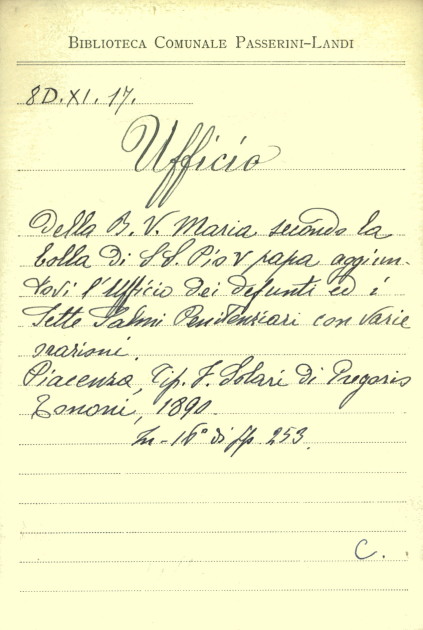 BIBLIOTECA COMUNALE PASSERINI-LANDI
8D.XI.17.
Ufficio
Della B. V. Maria secondo la
bolla di S.S. Pio V papa aggiun-
tovi l'Ufficio dei defunti ed i
Sette Salmi Penitenziari con varie
orazioni.
Piacenza, Tip. F. Solari di Gregorio
Tononi, 1890.
In-16° di pp. 253.
C.